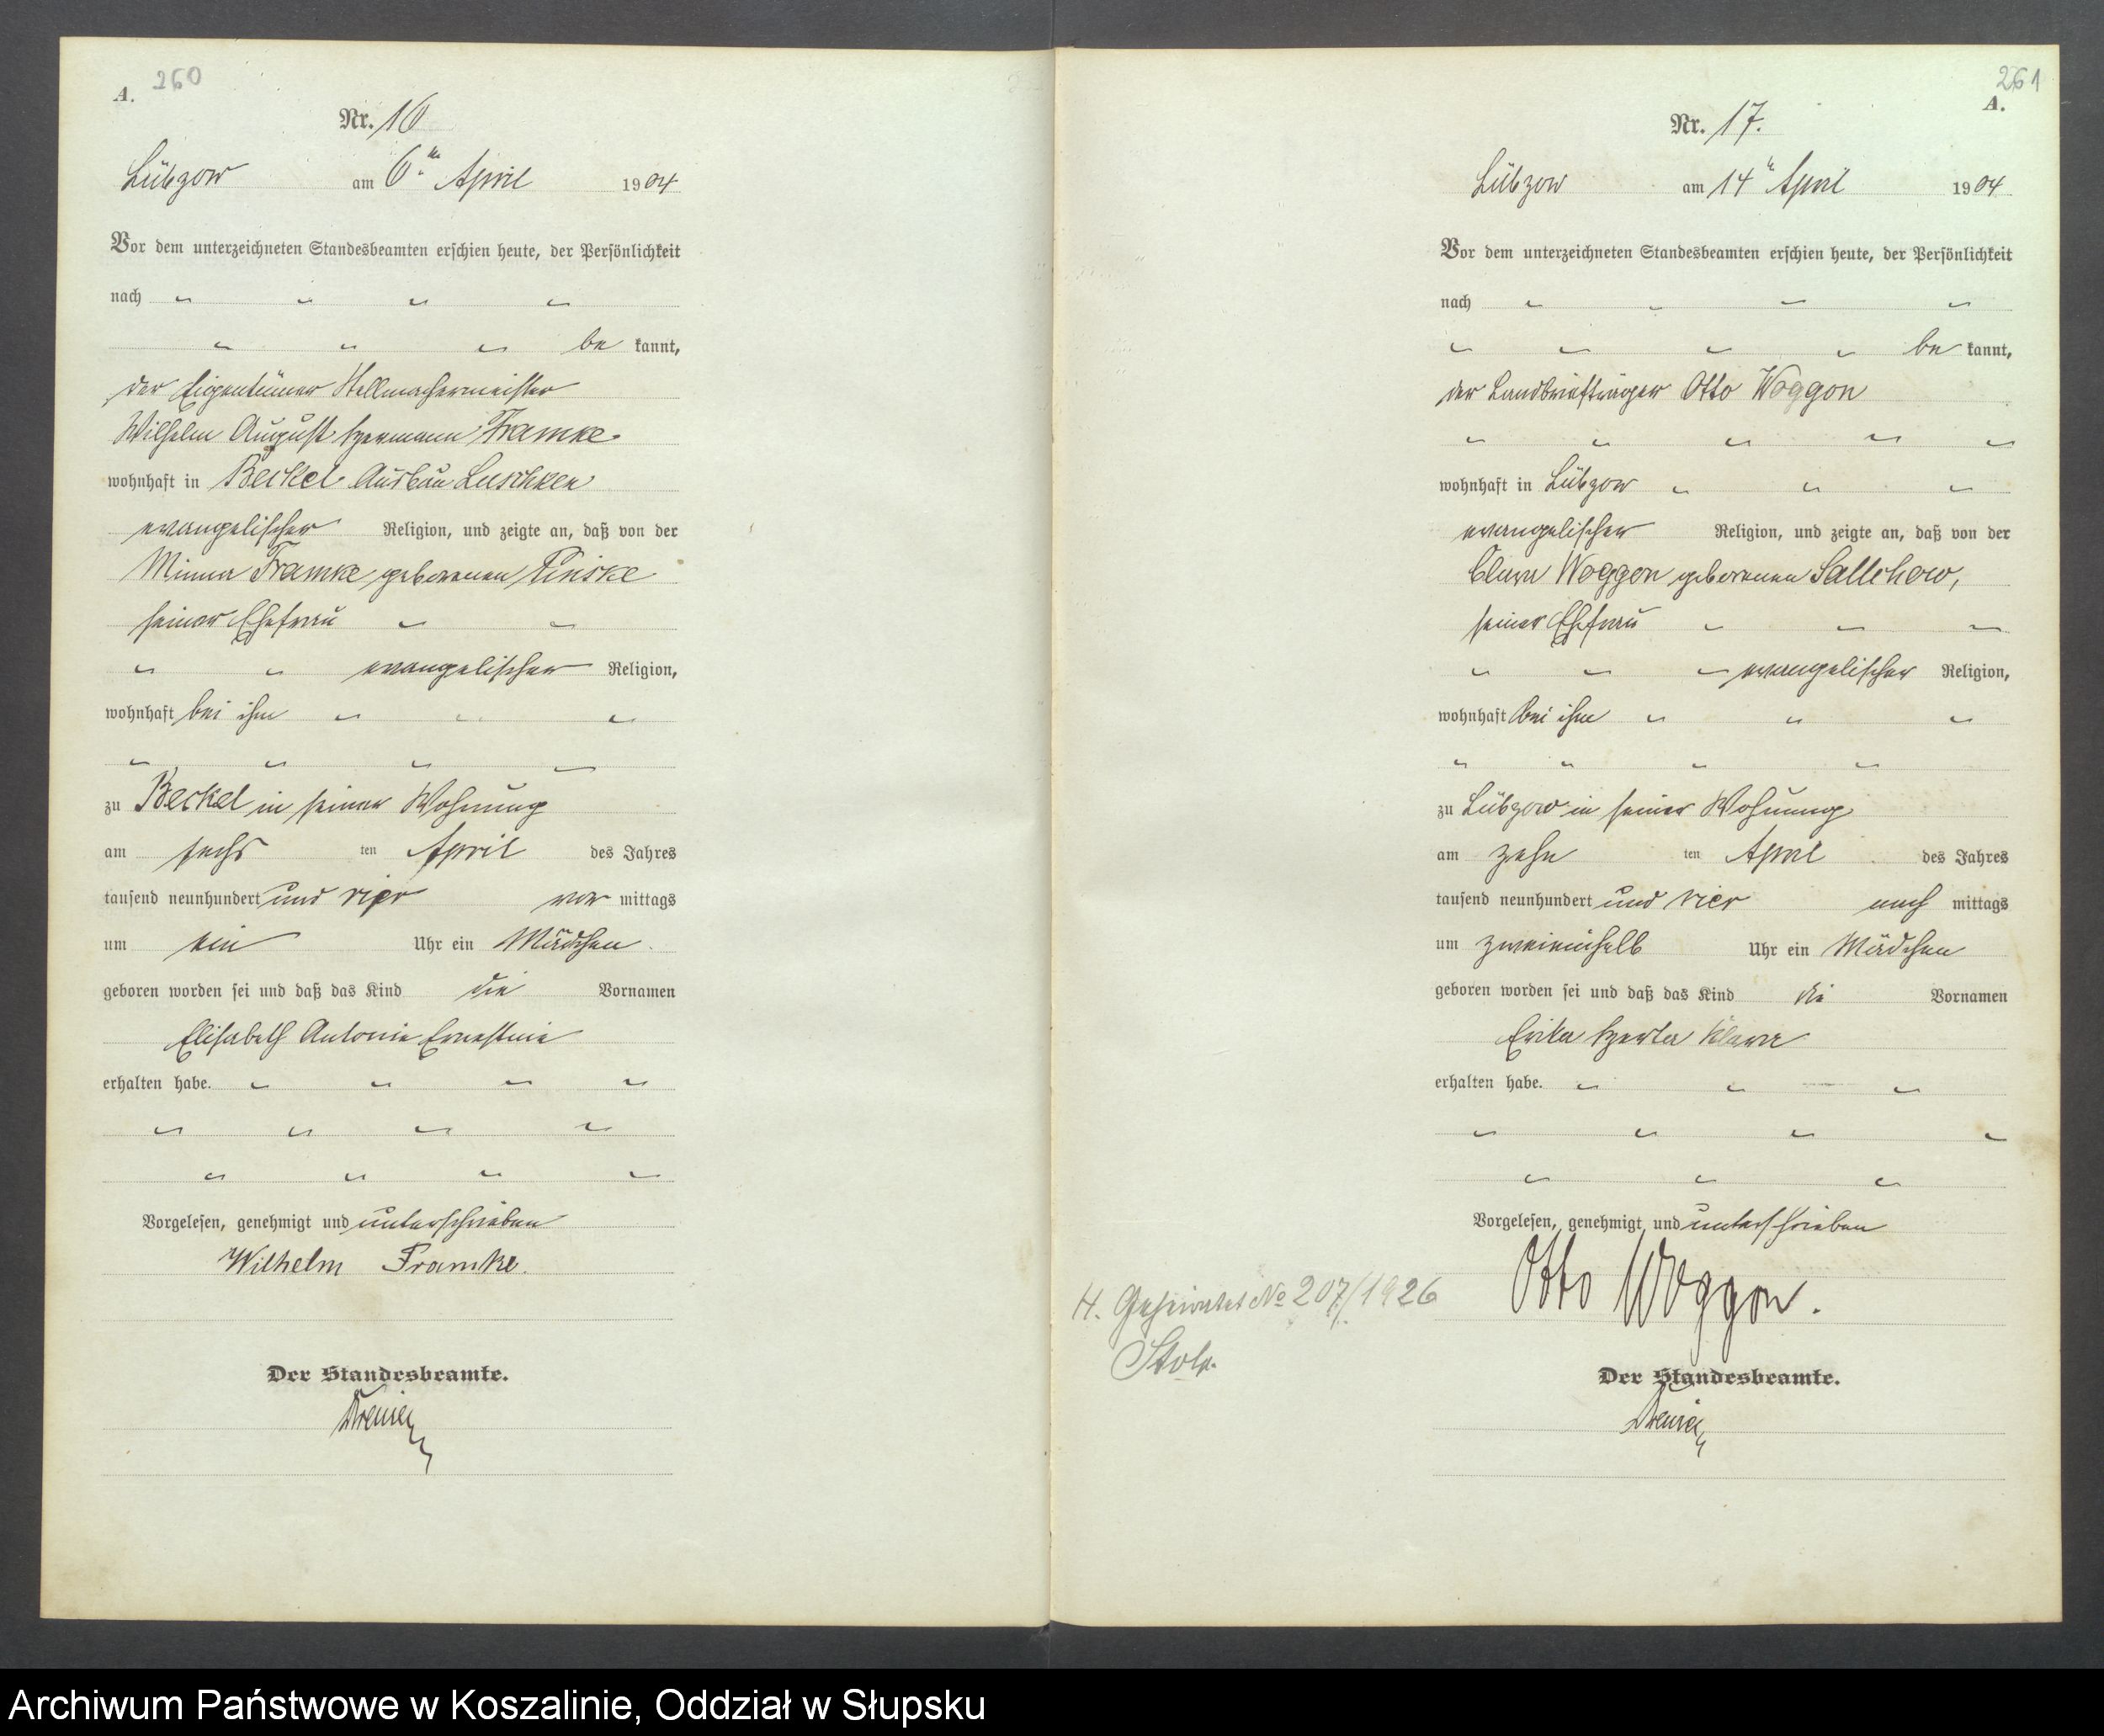 260
A.
Nr. 16
Lübzow am 6ten April 1904
Vor dem unterzeichneten Standesbeamten erschien heute, der Persönlichkeit
nach
be kannt,
der Eigentümer Stellmachermeister
Wilhelm August Hermann Framke
wohnhaft in Beckel Ausbau Luschken
evangelischer Religion, und zeigte an, daß von der
Minna Framke geborenen Pinske
seiner Ehefrau
evangelischer Religion,
wohnhaft bei ihm
zu Beckel in seiner Wohnung
am sechs ten April des Jahres
tausend neunhundert und vier vor mittags
um ein Uhr ein Mädchen
geboren worden sei und daß das Kind die Vornamen
Elisabeth Antonie Ernestine
erhalten habe.
Vorgelesen, genehmigt und unterschrieben
Wilhelm Framke.
Der Standesbeamte.
261
A.
Nr. 17.
Lübzow am 14ten April 1904
Vor dem unterzeichneten Standesbeamten erschien heute, der Persönlichkeit
nach
be kannt,
der Landbriefträger Otto Woggon
wohnhaft in Lübzow
evangelischer Religion, und zeigte an, daß von der
Clara Woggon geborenen Sallchow,
seiner Ehefrau
evangelischer Religion,
wohnhaft bei ihm
zu Lübzow in seiner Wohnung
am zehn ten April des Jahres
tausend neunhundert und vier nach mittags
um zweieinhalb Uhr ein Mädchen
geboren worden sei und daß das Kind die Vornamen
Erika Herta Klara
erhalten habe.
Vorgelesen, genehmigt und unterschrieben
Otto Woggon.
H. Geheiratet No 207/1926
Stolp.
Der Standesbeamte.
Archiwum Państwowe w Koszalinie, Oddział w Słupsku